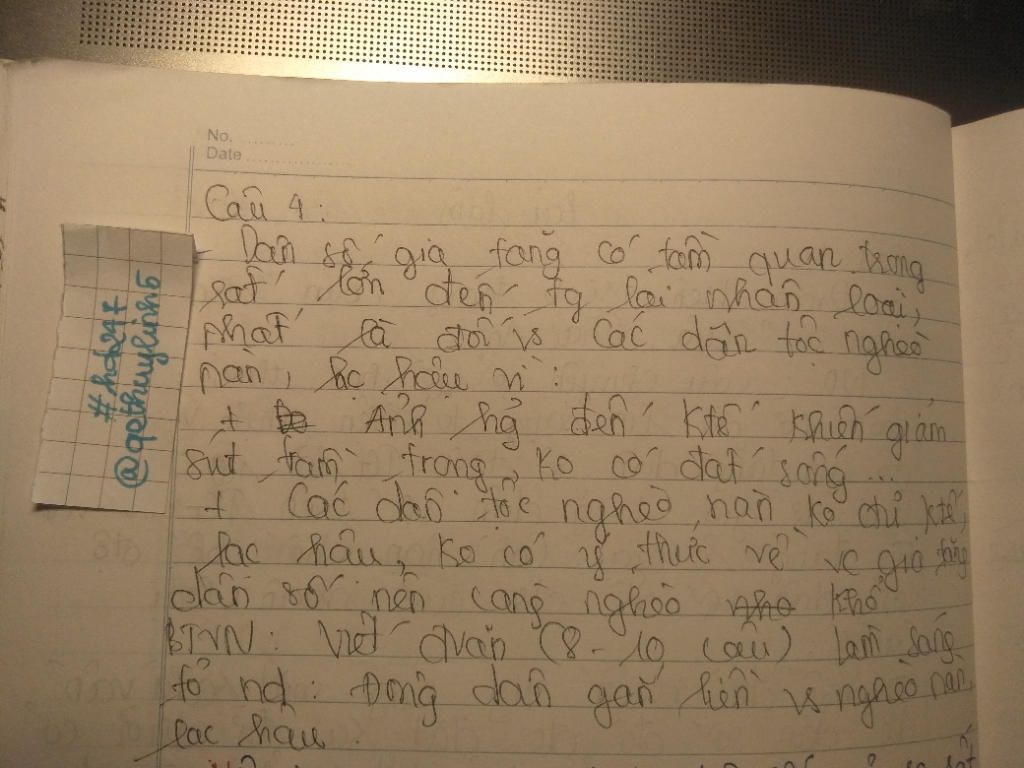 No.
Date
Câu 4:
- Dân số gia tăng có tầm quan trọng
rất lớn đến tg lai nhân loại,
nhất là đối vs các dân tộc nghèo
nàn, lạc hậu vì:
+ Ảnh hg đến ktế khiến giảm
sút trầm trọng, ko có đất sống...
+ Các dân tộc nghèo nàn ko chỉ ktế
lạc hậu, ko có ý thức về vc gia tăng
dân số nên càng nghèo khổ
BTVN: Viết đvăn (8-10 câu) làm sáng
tỏ nd: Đông dân gắn liền vs nghèo nàn,
lạc hậu.
#hoc247
@gethuylinh5